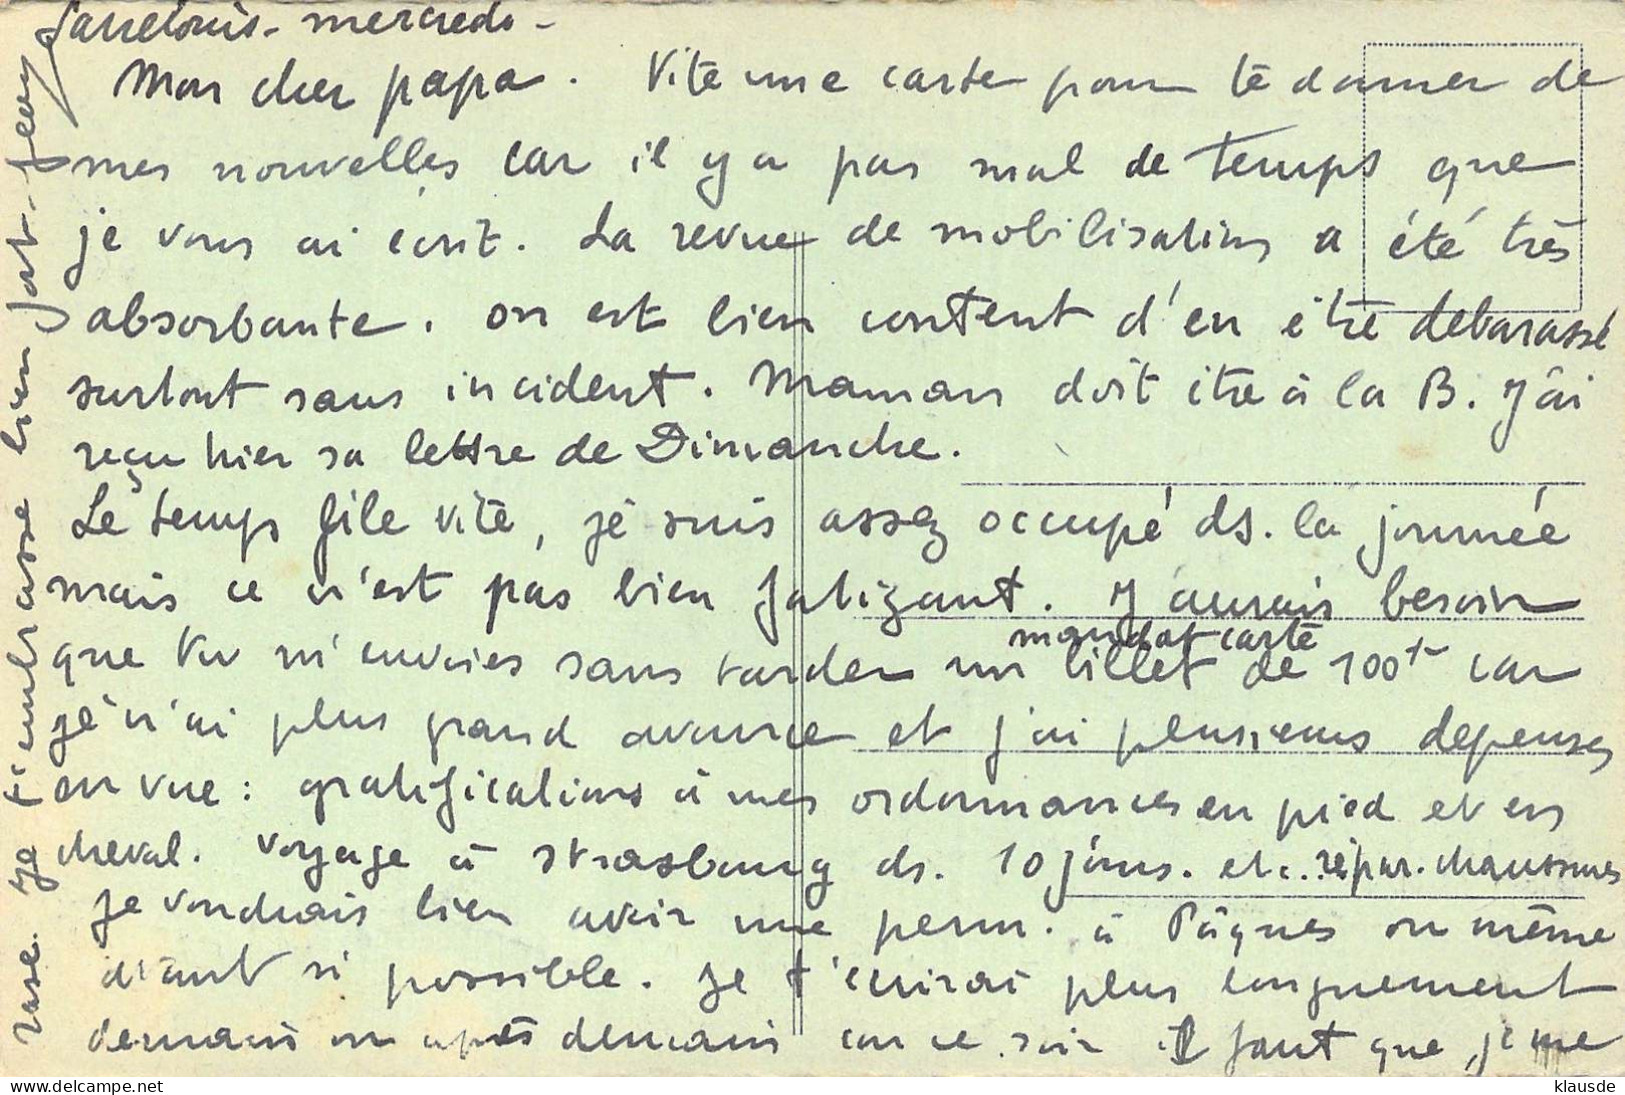 Sarrelouis - mercredi -
Mon cher papa. Vite une carte pour te donner de
mes nouvelles car il y a pas mal de temps que
je vous ai écrit. La revue de mobilisation a été très
absorbante. on est bien content d'en être debarassé
surtout sans incident. Maman doit être à la B. J'ai
reçu hier sa lettre de Dimanche.
Le temps file vite, je suis assez occupé ds. la journée
mais ce n'est pas bien fatigant. J'aurais besoin
mandat carte
que tu m'envoies sans tarder un billet de 100 car
je n'ai plus grand avance et j'ai plusieurs depenses
en vue : gratifications à mes ordonnances en pied et en
cheval. voyage à Strasbourg ds. 10 jours. etc.. répar. chaussures
Je voudrais bien avoir une perm. à Pâques ou même
avant si possible. Je t'écrirai plus longuement
demain ou après demain car ce soir il faut que je me
rase. Je t'embrasse bien fort - Jean
klausde